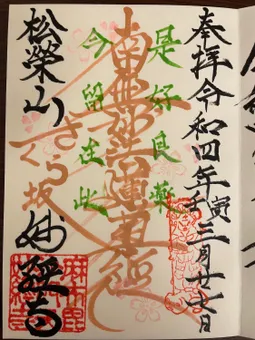 奉拝令和四年壬寅三月廿七日
是好良薬
南無妙法蓮華経
今留在此
さくら坂
松榮山
妙延寺